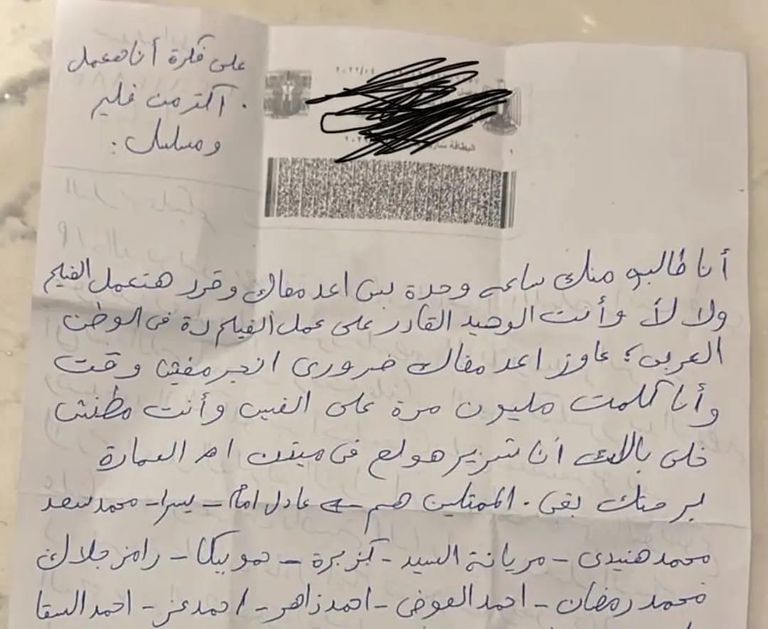 على فكرة أنا هعمل
أكتر من فليم
ومسلسل.
البطاقة سار
أنا طالبو منك ساعه وحدة بس اعد معاك وقرر هتعمل الفيلم
ولا لأ وأنت الوحيد القادر على عمل الفيلم دة فى الوطن
العربى؛ عاوز اعد معاك ضرورى انجر مفيش وقت
وأنا كلمت مليون مرة على الفيس وأنت مطنش
خلى بالك أنا شريرهولع فى ميتين ام العمارة
لو بقى. الممثلين هم عادل امام - يسرا - محمد سعد
محمد هنيدى - مريانة السيد - كزبرة - حمو بيكا - رامز جلال
محمد رمضان - احمد العوضى - احمد زاهر - احمد عز - احمد السقا